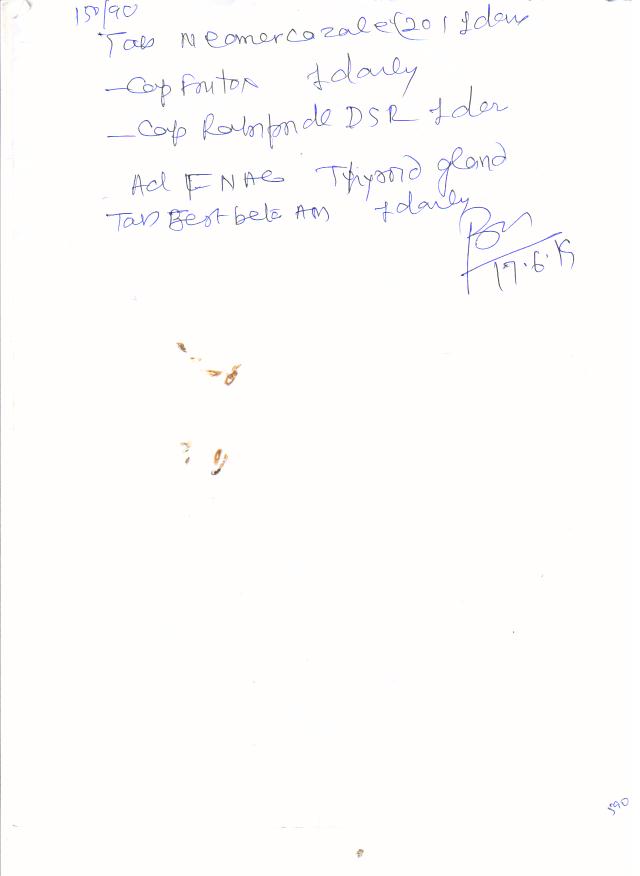 150/90
Tab Neomercazale (20) 1 daily
- Cap 1 daily
- Cap DSR 1 daily
Ad FNAC Thyroid gland
Tab beta AM 1 daily
17.6.19
590